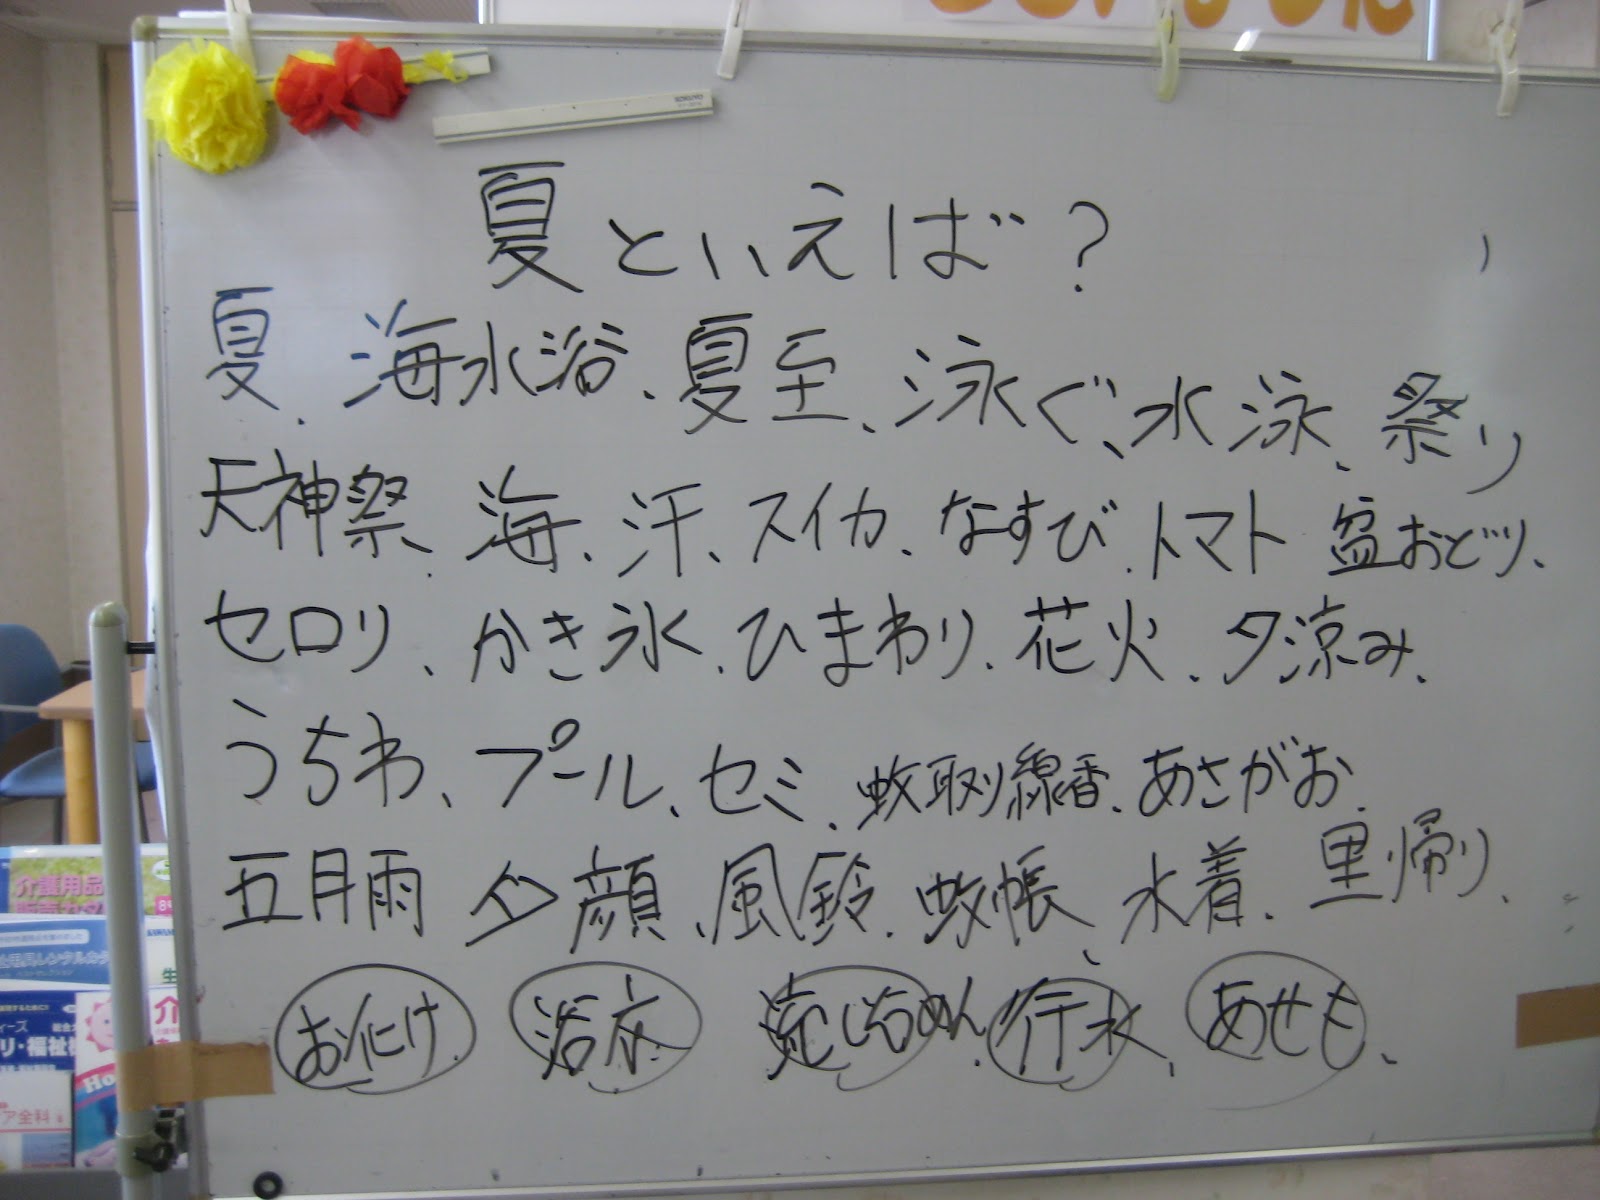 夏といえば?
夏、海水浴、夏至、泳ぐ、水泳、祭り
天神祭、海、汗、スイカ、なすび、トマト 盆おどり、
セロリ、かき氷、ひまわり、花火、夕涼み、
うちわ、プール、セミ、蚊取り線香、あさがお、
五月雨 夕顔、風鈴、蚊帳、水着、里帰り、
浴衣 行水、あせも、
KOKUYO
介護用品